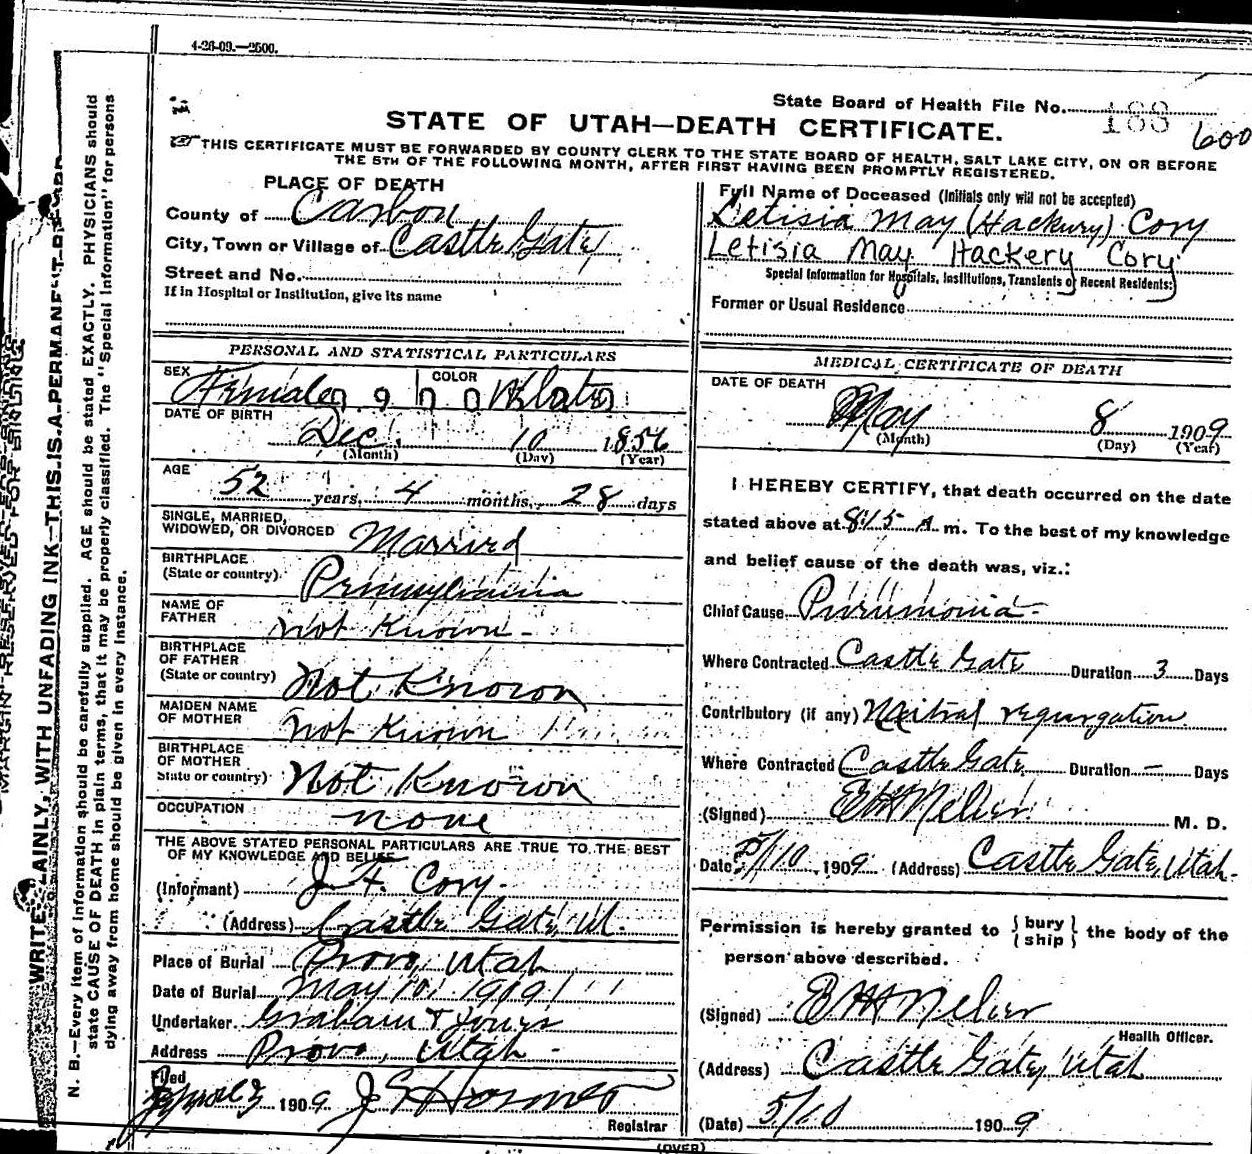 4-26-09.—2500.
State Board of Health File No. 188 600
STATE OF UTAH—DEATH CERTIFICATE.
THIS CERTIFICATE MUST BE FORWARDED BY COUNTY CLERK TO THE STATE BOARD OF HEALTH, SALT LAKE CITY, ON OR BEFORE
THE 5TH OF THE FOLLOWING MONTH, AFTER FIRST HAVING BEEN PROMPTLY REGISTERED.
PLACE OF DEATH
County of Carbon
City, Town or Village of Castle Gate
Street and No.
If in Hospital or Institution, give its name
Full Name of Deceased (Initials only will not be accepted)
Letisia May (Hackery) Cory
Letisia May Hackery Cory
Special Information for Hospitals, Institutions, Transients or Recent Residents:
Former or Usual Residence
PERSONAL AND STATISTICAL PARTICULARS
SEX Female COLOR White
DATE OF BIRTH
Dec. 10 1856
(Month) (Day) (Year)
AGE
52 years, 4 months, 28 days
SINGLE, MARRIED,
WIDOWED, OR DIVORCED Married
BIRTHPLACE
(State or country) Pennsylvania
NAME OF
FATHER Not Known
BIRTHPLACE
OF FATHER
(State or country) Not Known
MAIDEN NAME
OF MOTHER Not Known
BIRTHPLACE
OF MOTHER
State or country) Not Known
OCCUPATION none
THE ABOVE STATED PERSONAL PARTICULARS ARE TRUE TO THE BEST
OF MY KNOWLEDGE AND BELIEF
(Informant) J. F. Cory.
(Address) Castle Gate, Ut.
Place of Burial Provo, Utah
Date of Burial May 10, 1909
Undertaker. Graham &
Address Provo, Utah
Filed
1909
Registrar
MEDICAL CERTIFICATE OF DEATH
DATE OF DEATH
May 8 1909
(Month) (Day) (Year)
I HEREBY CERTIFY, that death occurred on the date
stated above at 8:15 A m. To the best of my knowledge
and belief cause of the death was, viz.:
Chief Cause Pneumonia
Where Contracted Castle Gate Duration 3 Days
Contributory (if any) Mitral regurgation
Where Contracted Castle Gate Duration — Days
(Signed) M. D.
Date 5/10, 1909 (Address) Castle Gate, Utah.
Permission is hereby granted to { bury } the body of the
{ ship }
person above described.
(Signed)
Health Officer.
(Address) Castle Gate, Utah
(Date) 5/10 1909
(OVER)
WRITE PLAINLY, WITH UNFADING INK—THIS IS A PERMANENT RECORD
N. B.—Every item of information should be carefully supplied. AGE should be stated EXACTLY. PHYSICIANS should
state CAUSE OF DEATH in plain terms, that it may be properly classified. The "Special Information" for persons
dying away from home should be given in every instance.